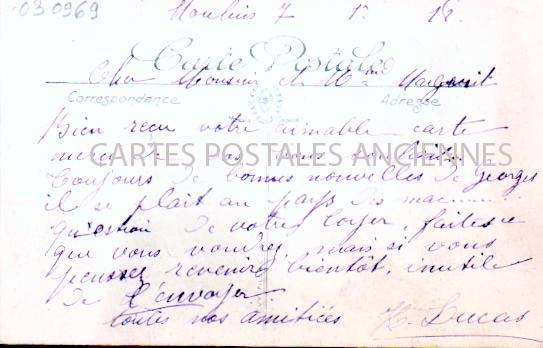 030969
Moulins 7 1. 18.
Carte Postale
Cher Monsieur et Mme
Correspondance Adresse
Bien reçu votre aimable carte
merci de
CARTES POSTALES ANCIENNES
toujours de bonnes nouvelles de Georges
il se plait au pays des mac......
qu'estion de votre loyer, faites ce
que vous voudrez, mais si vous
pensez revenir bientôt, inutile
de l'envoyer
toutes nos amitiées H. Lucas